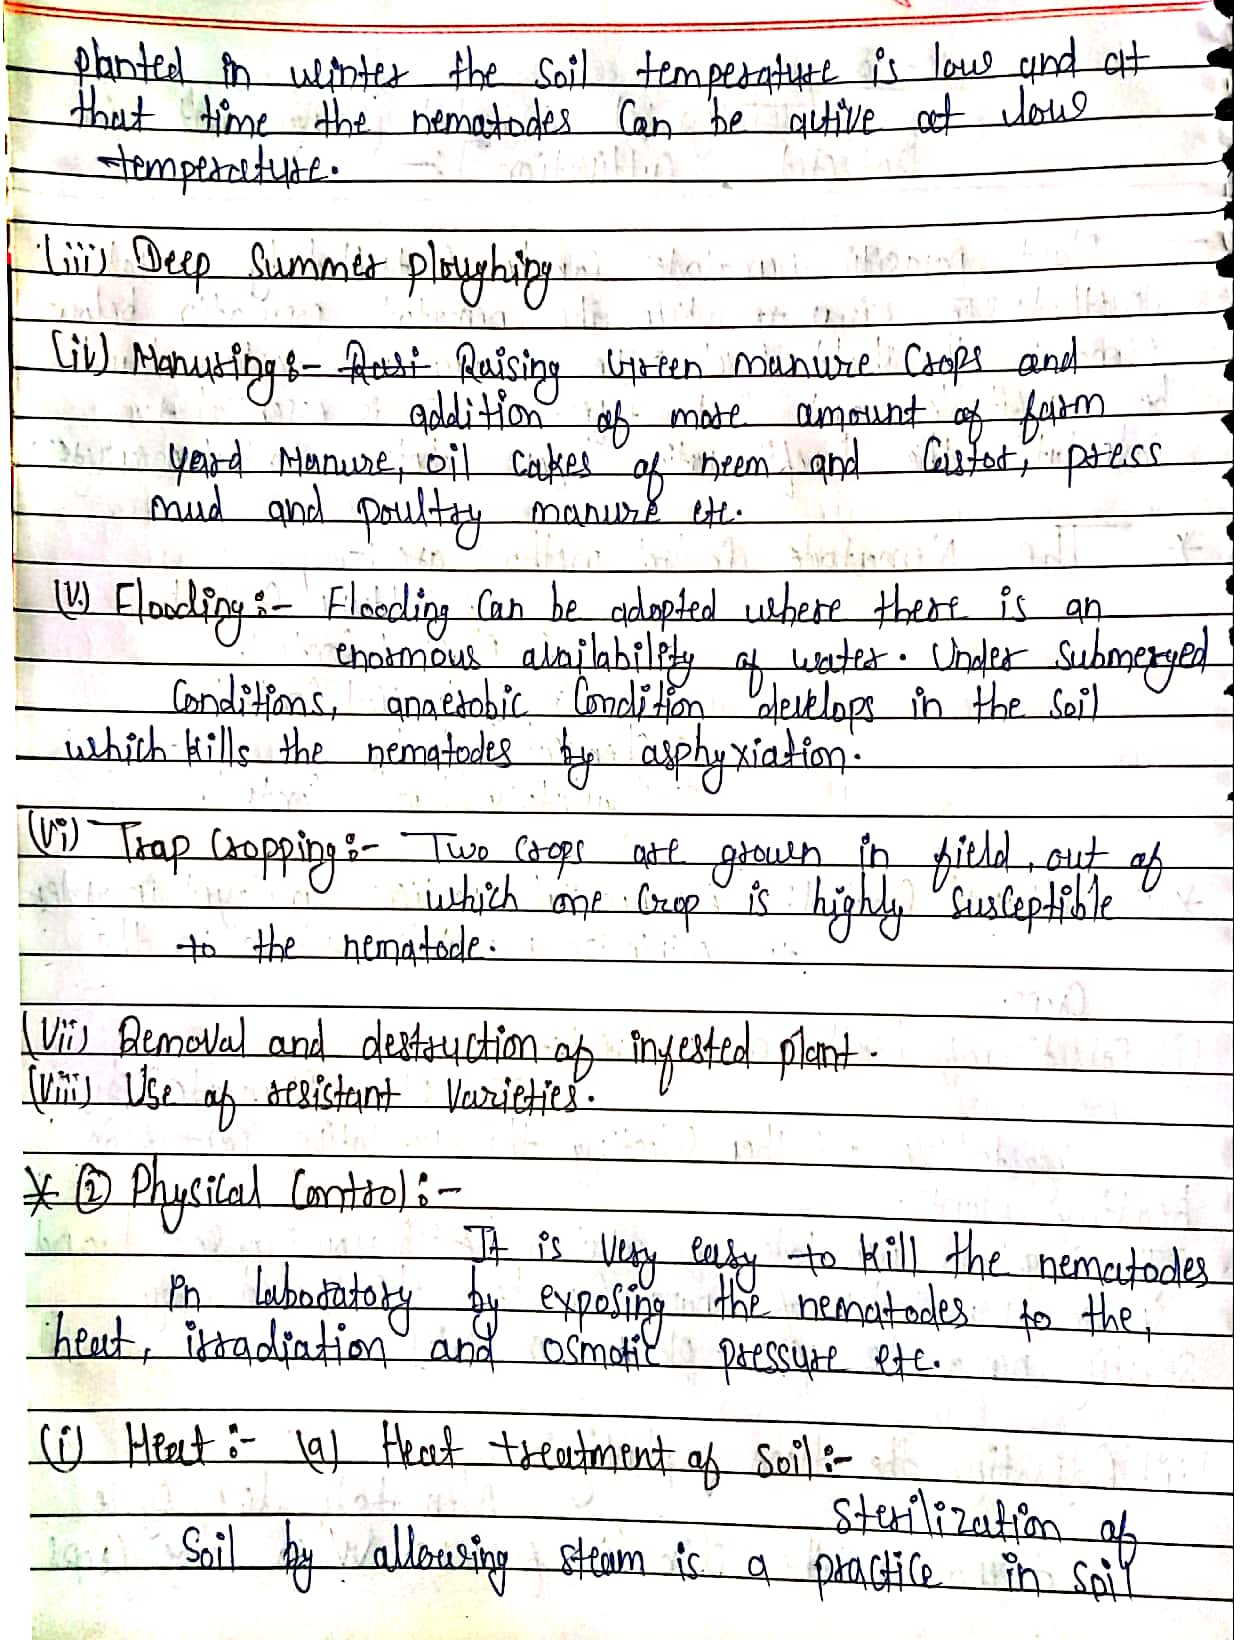 planted in winter the soil temperature is low and at
that time the nematodes can be active at low
temperature.
(iii) Deep Summer ploughing
(iv) Manuring :- Raising Green manure Crops and
addition of more amount of farm
yard Manure, oil cakes of neem and Castor, press
mud and poultry manure etc.
(v.) Flooding :- Flooding Can be adopted where there is an
enormous availability of water. Under Submerged
Conditions, anaerobic Condition develops in the Soil
which kills the nematodes by asphyxiation.
(vi) Trap Cropping :- Two Crops are grown in field, out of
which one Crop is highly Susceptible
to the nematode.
(vii) Removal and destruction of infested plant.
(viii) Use of resistant Varieties.
* ② Physical Control :-
It is Very easy to Kill the nematodes
in laboratory by exposing the nematodes to the,
heat, irradiation and osmotic pressure etc.
(i) Heat :- (a) Heat treatment of Soil :-
Sterilization of
Soil by allowing steam is a practice in soil